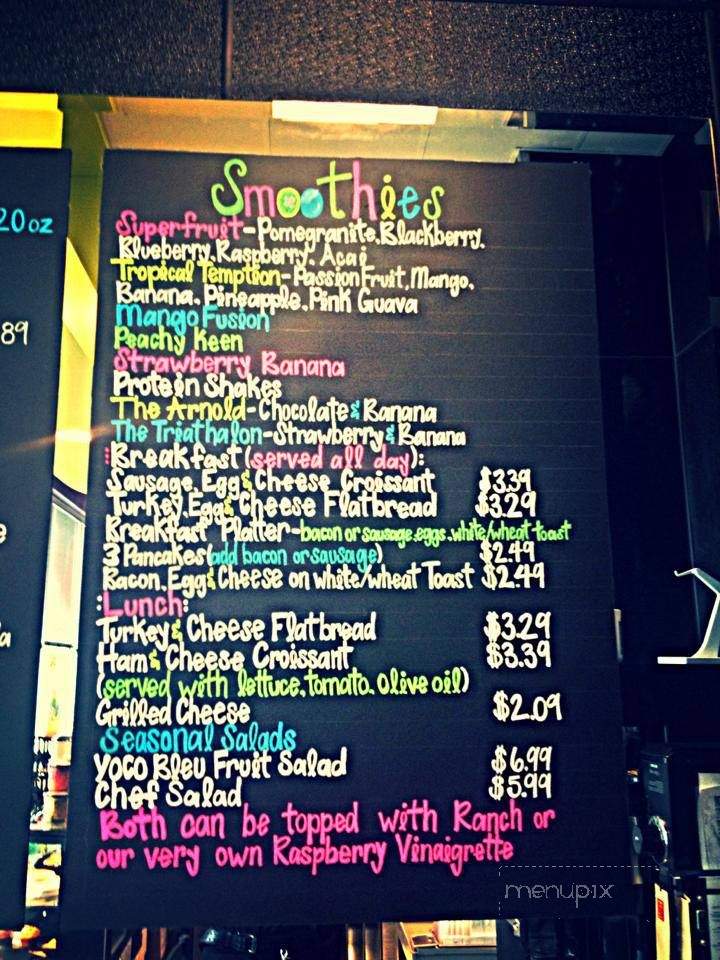 Smoothies
20 oz
Superfruit-Pomegranite, Blackberry,
Blueberry, Raspberry, Acai
Tropical Temption-Passion Fruit, Mango,
Banana, Pineapple, Pink Guava
Mango Fusion
89
Peachy Keen
Strawberry Banana
Protein Shakes
The Arnold-Chocolate & Banana
The Triathalon-Strawberry & Banana
:Breakfast (served all day):
Sausage, Egg & Cheese Croissant $3.39
Turkey, Egg & Cheese Flatbread $3.29
Breakfast Platter-bacon or sausage, eggs, white/wheat toast
3 Pancakes (add bacon or sausage) $2.49
Bacon, Egg & Cheese on white/wheat Toast $2.49
:Lunch:
Turkey & Cheese Flatbread $3.29
Ham & Cheese Croissant $3.39
(served with lettuce, tomato, olive oil)
Grilled Cheese $2.09
Seasonal Salads
Yoco Bleu Fruit Salad $6.99
Chef Salad $5.99
Both can be topped with Ranch or
our very own Raspberry Vinaigrette
menupix